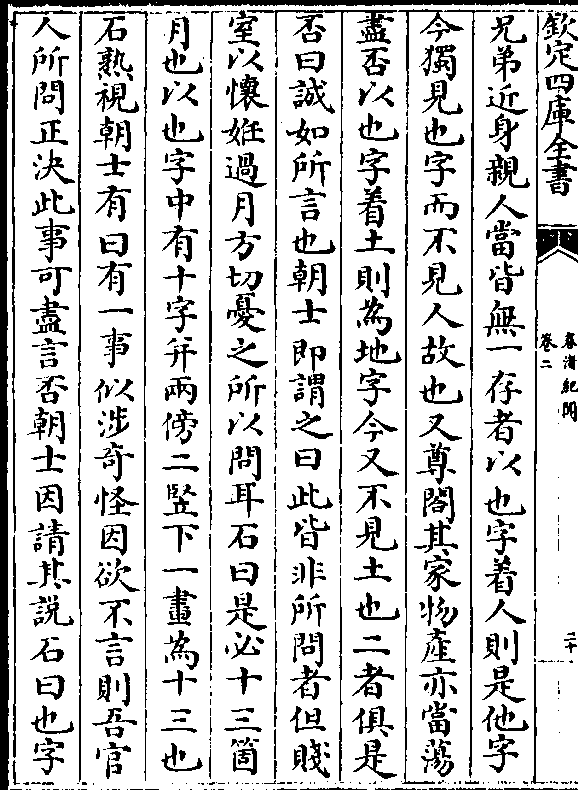 欽定四庫全書
春渚紀聞
卷二
二十
兄弟近身親人當皆無一存者以也字着人則是他字
今獨見也字而不見人故也又尊閣其家物產亦當蕩
盡否以也字着土則為地字今又不見土也二者俱是
否曰誠如所言也朝士即謂之曰此皆非所問者但賤
室以懷姙過月方切憂之所以問耳石曰是必十三箇
月也以也字中有十字并兩傍二竪下一畫為十三也
石熟視朝士有曰有一事似涉奇怪因欲不言則吾官
人所問正決此事可盡言否朝士因請其説石曰也字